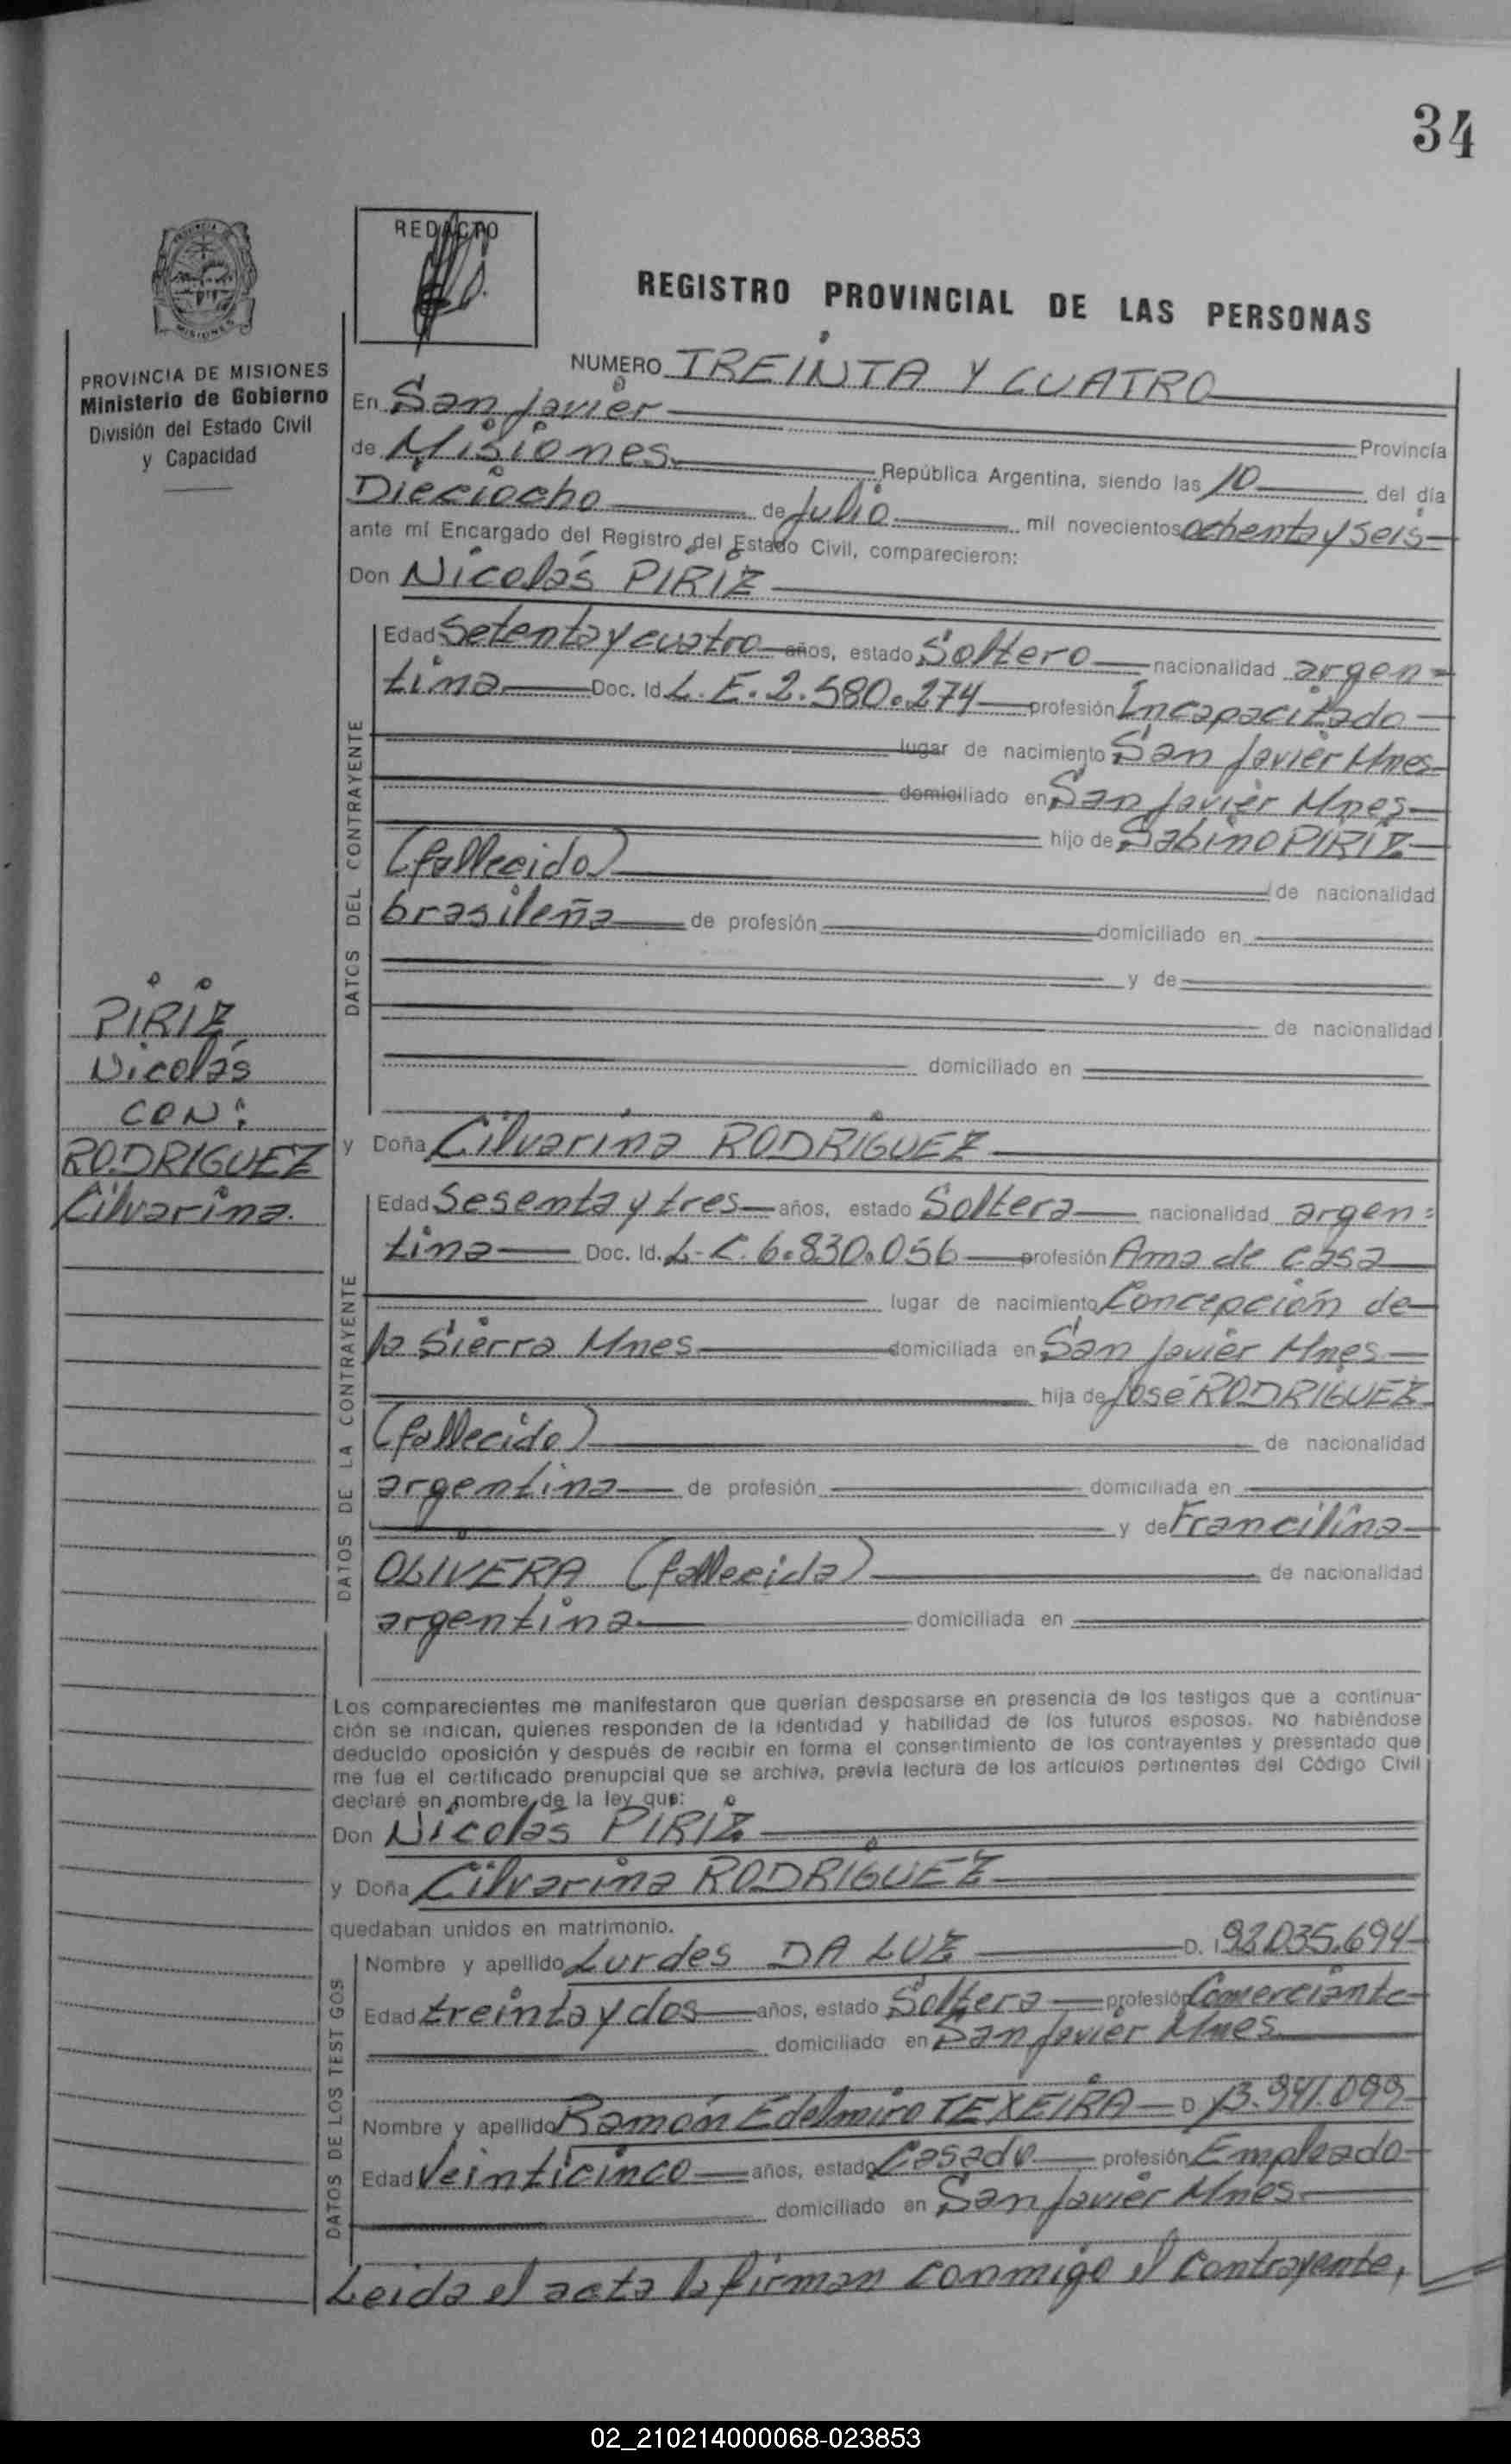 34
REDACTO
REGISTRO PROVINCIAL DE LAS PERSONAS
MISIONES
PROVINCIA DE MISIONES
Ministerio de Gobierno
División del Estado Civil
y Capacidad
NUMERO TREINTA Y CUATRO
En San Javier Provincia
de Misiones República Argentina, siendo las 10 del día
Dieciocho de Julio mil novecientos ochenta y seis
ante mí Encargado del Registro del Estado Civil, comparecieron:
Don Nicolás PIRIZ
DATOS DEL CONTRAYENTE
Edad Setenta y cuatro años, estado Soltero nacionalidad argen=
tina Doc. Id. L.E. 2.580.274 profesión Incapacitado
lugar de nacimiento San Javier Mnes
domiciliado en San Javier Mnes
hijo de Sabino PIRIZ
(fallecido) de nacionalidad
brasileña de profesión domiciliado en
y de
de nacionalidad
domiciliado en
PIRIZ
Nicolás
CON:
RODRIGUEZ
Cilvarina.
y Doña Cilvarina RODRIGUEZ
DATOS DE LA CONTRAYENTE
Edad Sesenta y tres años, estado Soltera nacionalidad argen=
tina Doc. Id. L.C. 6.830.056 profesión Ama de casa
lugar de nacimiento Concepción de
la Sierra Mnes domiciliada en San Javier Mnes
hija de José RODRIGUEZ
(fallecido) de nacionalidad
argentina de profesión domiciliada en
y de Francilina
OLIVERA (fallecida) de nacionalidad
argentina domiciliada en
Los comparecientes me manifestaron que querían desposarse en presencia de los testigos que a continua-
ción se indican, quienes responden de la identidad y habilidad de los futuros esposos. No habiéndose
deducido oposición y después de recibir en forma el consentimiento de los contrayentes y presentado que
me fue el certificado prenupcial que se archiva, previa lectura de los artículos pertinentes del Código Civil
declaré en nombre de la ley que:
Don Nicolás PIRIZ
y Doña Cilvarina RODRIGUEZ
quedaban unidos en matrimonio.
DATOS DE LOS TESTIGOS
Nombre y apellido Lurdes DA LUZ D. I. 92.035.694
Edad treinta y dos años, estado Soltera profesión Comerciante
domiciliado en San Javier Mnes
Nombre y apellido Ramón Edelmiro TEXEIRA D 13.941.099
Edad Veinticinco años, estado Casado profesión Empleado
domiciliado en San Javier Mnes
Leida el acta la firman conmigo el contrayente,
02_210214000068-023853